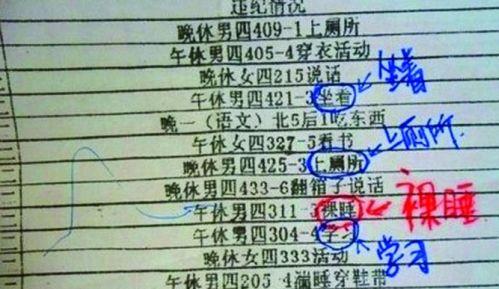 违纪情况
晚休男四409-1上厕所
午休男四405-4穿衣活动
晚休女四215说话
午休男四421-3坐着
坐着
晚一(语文)北5后1吃东西
午休女四327-5看书
上厕所
晚休男四425-3上厕所
晚休男四433-6翻箱子说话
午休男四311-3裸睡
裸睡
午休男四304-4学习
学习
晚休女四333活动
午休男四205-4 睡穿鞋带